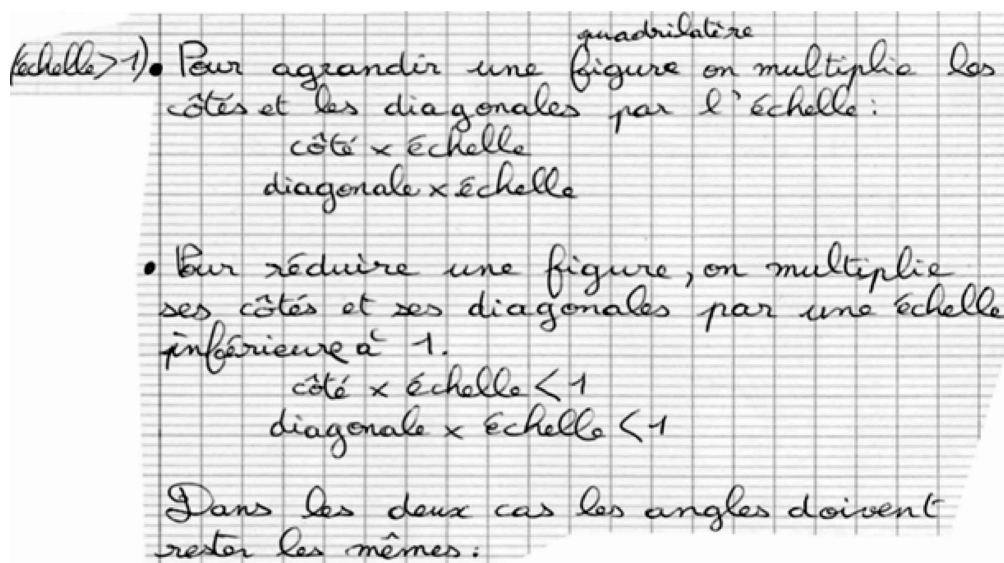 quadrilatère
(échelle>1). Pour agrandir une figure on multiplie les
côtés et les diagonales par l'échelle :
côté × échelle
diagonale × échelle
• Pour réduire une figure, on multiplie
ses côtés et ses diagonales par une échelle
inférieure à 1.
côté × échelle < 1
diagonale × échelle < 1
Dans les deux cas les angles doivent
rester les mêmes :